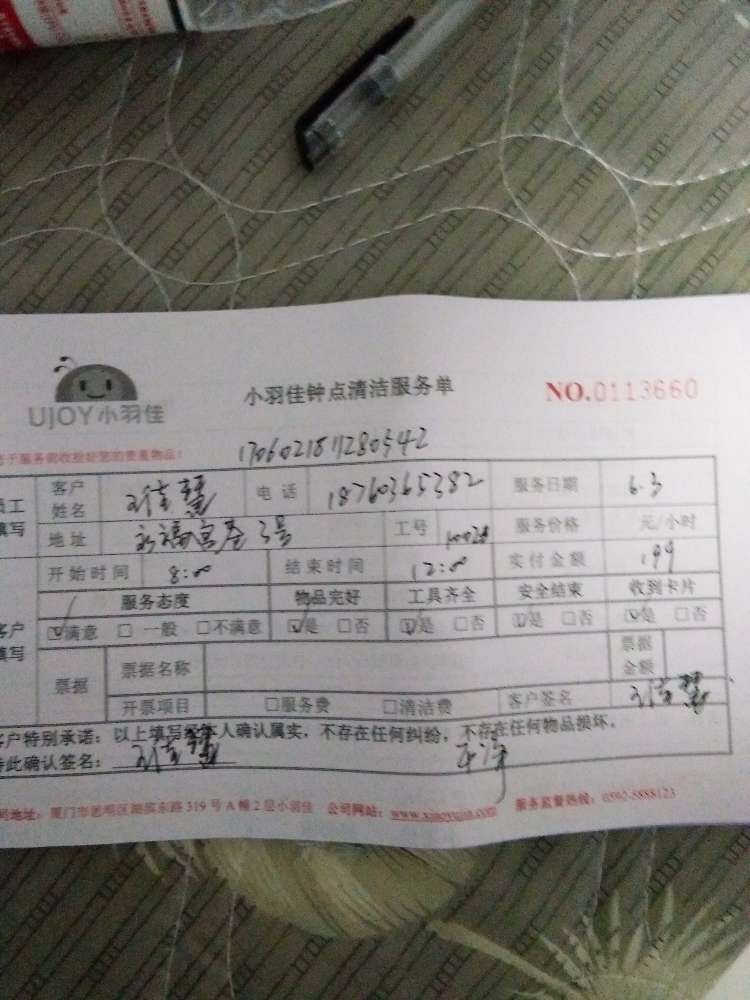 UJOY小羽佳
小羽佳钟点清洁服务单
NO.0113660
于服务前收拾好您的贵重物品!
1706021811280542
员工填写
客户姓名
电话 18760365382 服务日期 6.3
地址 3号 工号 服务价格 元/小时
开始时间 8:00 结束时间 12:00 实付金额 199
服务态度 物品完好 工具齐全 安全结束 收到卡片
客户填写
☑满意 □一般 □不满意 ☑是 □否 ☑是 □否 ☑是 □否 ☑是 □否
票据 票据名称 票据金额
开票项目 □服务费 □清洁费 客户签名
客户特别承诺：以上填写经本人确认属实，不存在任何纠纷，不存在任何物品损坏。
特此确认签名：
司地址：厦门市思明区湖滨东路319号A幢2层小羽佳 公司网站：www.xiaoyujia.com 服务监督热线：0592-5888123